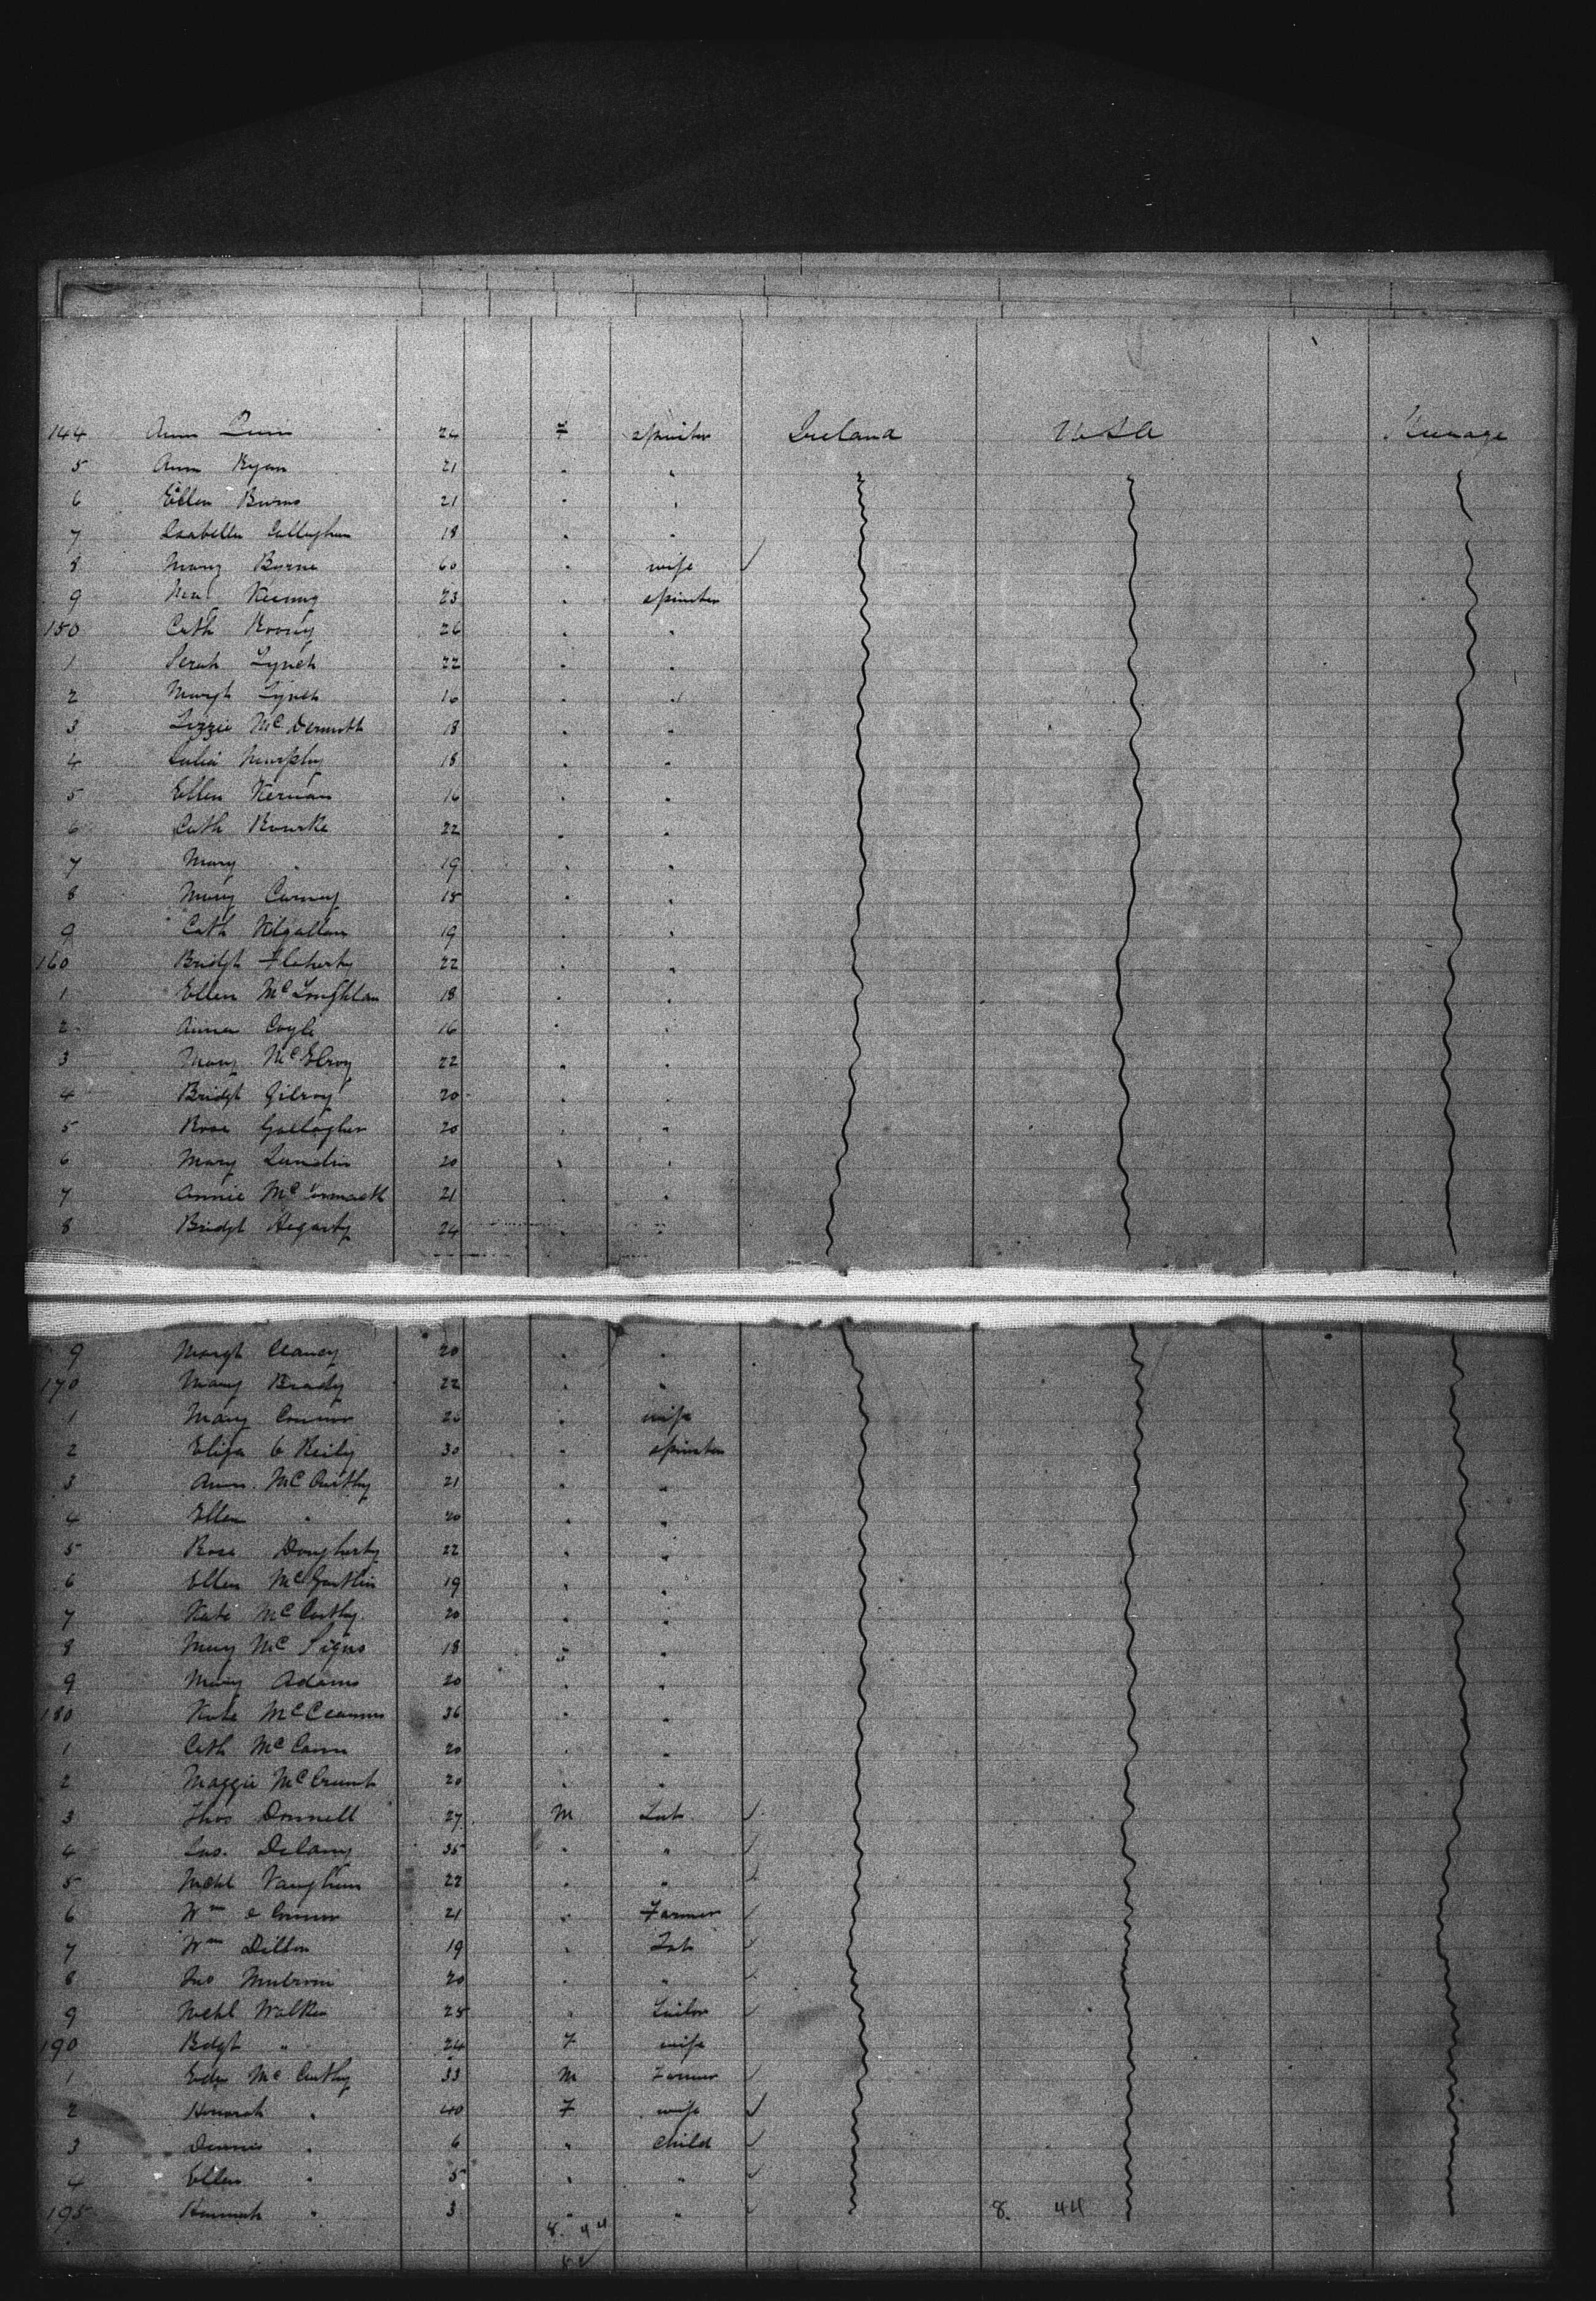 144 Ann Quin 24 F spinster Ireland USA Steerage
5 Ann Ryan 21 " "
6 Ellen Burns 21 " "
7 Isabella Gallaghan 18 " "
8 Mary Byrne 60 " wife ✓
9 23 " spinster
150 Cath Rooney 26 " "
1 Sarah Lynch 22 " "
2 Margt Lynch 16 " "
3 Lizzie McDermott 18 " "
4 Julia Murphy 18 " "
5 Ellen Kernan 16 " "
6 Cath Rourke 22 " "
7 Mary " 19 " "
8 Mary 18 " "
9 Cath Kilgallon 19 " "
160 Bridgt Flaherty 22 " "
1 Ellen McLoughlan 18 " "
2 Anna Coyle 16 " "
3 Mary McElroy 22 " "
4 Bridgt Gilroy 20 " "
5 Rose Gallagher 20 " "
6 Mary 20 " "
7 Annie McCormack 21 " "
8 Bridgt Hegarty 24 " "
9 Margt Clancy 20 " "
170 Mary Brady 22 " "
1 Mary Connor 26 " wife
2 Eliza O Reily 30 " spinster
3 Ann McCarthy 21 " "
4 Ellen " 20 " "
5 Rose Dougherty 22 " "
6 Ellen 19 " "
7 Kate McCarthy 20 " "
8 Mary Mc 18 " "
9 Mary Adams 20 " "
180 Kate 36 " "
1 Cath McCann 20 " "
2 Maggie 20 " "
3 Thos Donnell 27 M Lab ✓
4 Jno. Delany 35 " " ✓
5 Mchl Vaughan 22 " " ✓
6 Wm O Connor 21 " Farmer ✓
7 Wm Dillon 19 " Lab ✓
8 Jno 20 " " ✓
9 Mchl Walker 25 " Tailor ✓
190 Bdgt " 24 F wife
1 Edw McCarthy 33 M Farmer ✓
2 Honorah " 40 F wife ✓
3 Dennis " 6 " child ✓
4 Ellen " 5 " " ✓
195 Hannah " 3 " " ✓
8. 44 8. 44